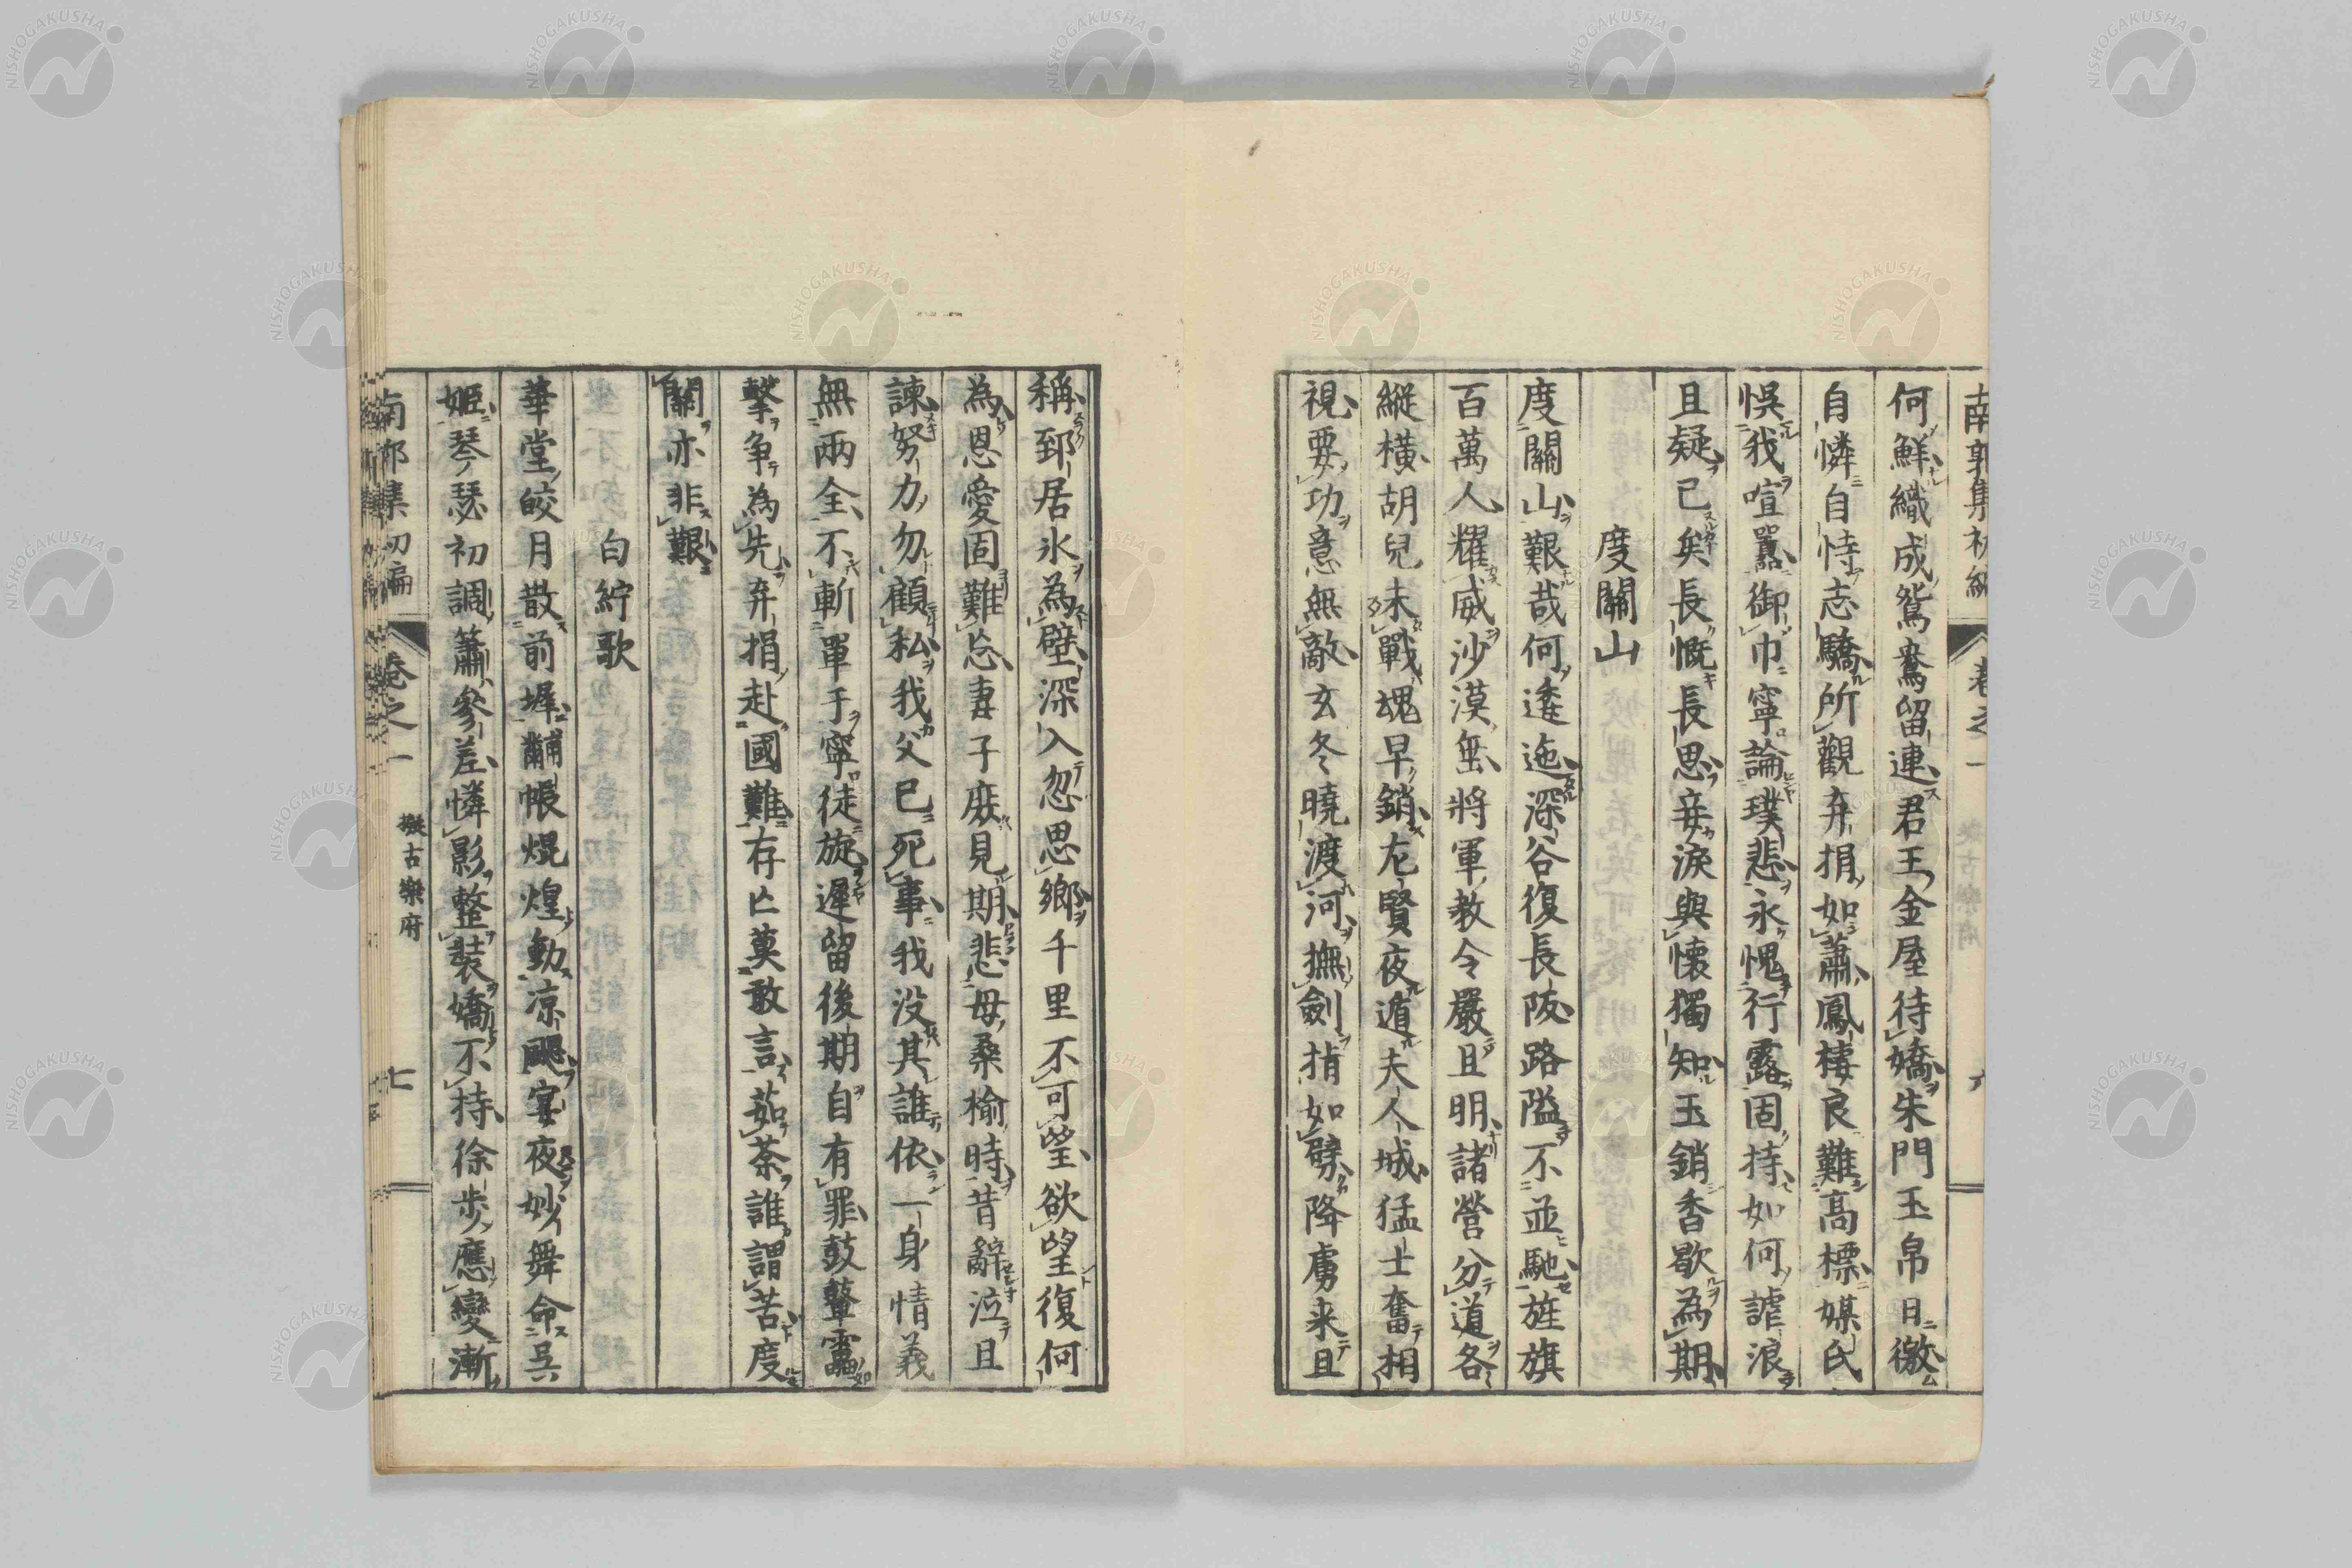 南郭集初編 卷之一 六
何鮮織成鴛鴦留連君王金屋待嬌朱門玉帛日徼
自憐自恃志驕所觀弃捐如蕭鳳棲良難高標媒氏
悞我喧囂御巾寧論璞悲永愧行露固持如何謔浪
且疑已矣長慨長思妾淚與懷獨知玉銷香歇為期
度關山
度關山艱哉何逶迤深谷復長阪路隘不並馳旌旗
百萬人耀威沙漠垂將軍教令嚴且明諸營分道各
縱橫胡兒未戰魂早銷左賢夜遁夫人城猛士奮相
視要功意無敵玄冬曉渡河撫劍指如劈降虜来且
稱郅居氷為壁深入忽思鄉千里不可望欲望復何
為恩愛固難忘妻子庶見期悲母桑榆時昔辭泣且
諫努力勿顧私我父已死事我没其誰依一身情義
無兩全不斬單于寧徒旋遲留後期自有罪鼓鼙靁
擊争為先弃捐赴國難存亡莫敢言茹荼誰謂苦度
關亦非艱
白紵歌
華堂皎月散前墀黼帳焜煌動凉颸宴夜妙舞命吴
姬琴瑟初調簫參差憐影整装嬌不持徐步應變漸
南郭集初編 卷之一 擬古樂府 七
NISHOGAKUSHA